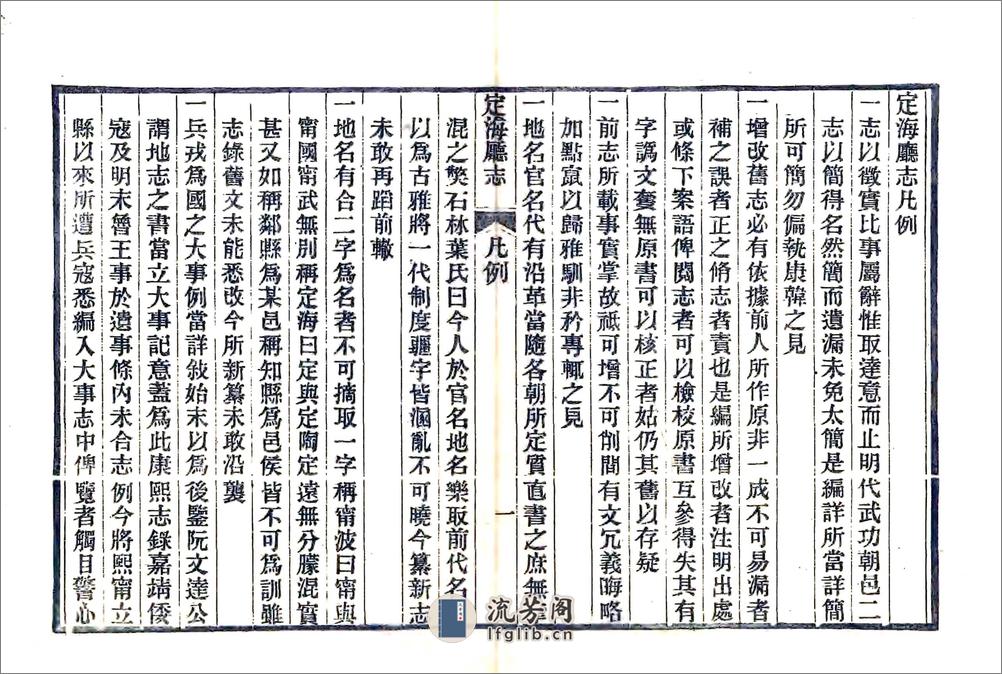 定海廳志凡例
一志以徵實比事屬辭惟取達意而止明代武功朝邑二
志以簡得名然簡而遺漏未免太簡是編詳所當詳簡
所可簡勿偏執康韓之見
一增改舊志必有依據前人所作原非一成不可易漏者
補之誤者正之脩志者責也是編所增改者注明出處
或條下案語俾閱志者可以檢校原書互參得失其有
字譌文奪無原書可以核正者姑仍其舊以存疑
一前志所載事實掌故祗可增不可削間有文冗義晦略
加點竄以歸雅馴非矜專輒之見
一地名官名代有沿革當隨各朝所定質直書之庶無牽
定海廳志
凡例
一
混之獘石林葉氏曰今人於官名地名樂取前代名
以爲古雅將一代制度疆字皆溷亂不可曉今纂新志
未敢再蹈前轍
一地名有合二字爲名者不可摘取一字稱甯波曰甯與
甯國甯武無別稱定海曰定與定陶定遠無分朦混實
甚又如稱鄰縣爲某邑稱知縣爲邑侯皆不可爲訓雖
志錄舊文未能悉改今所新纂未敢沿襲
一兵戎爲國之大事例當詳敍始末以爲後鑒阮文達公
謂地志之書當立大事記意蓋爲此康熙志錄嘉靖倭
寇及明末魯王事於遺事條內未合志例今將熙甯立
縣以來所遭兵寇悉編入大事志中俾覽者觸目警心
流芳阁
lfglib.cn